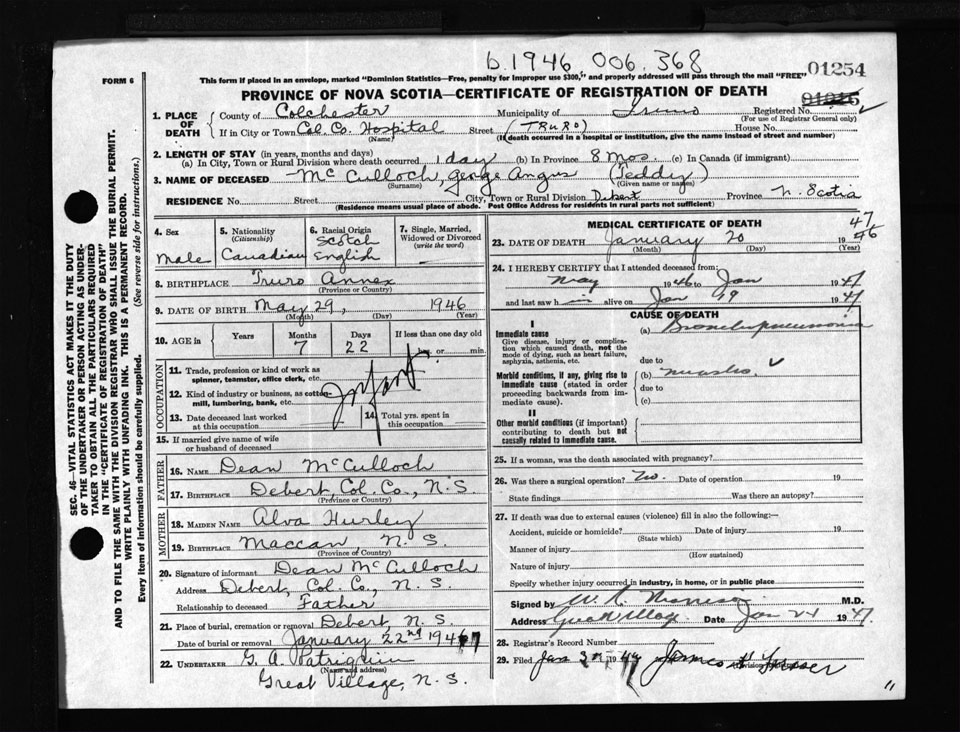 b.1946 006.368
This form if placed in an envelope, marked "Dominion Statistics—Free, penalty for improper use $300," and properly addressed will pass through the mail "FREE"
01254
FORM 6
PROVINCE OF NOVA SCOTIA—CERTIFICATE OF REGISTRATION OF DEATH
1. PLACE OF DEATH
County of Colchester Municipality of Truro Registered No.
(For use of Registrar General only)
If in City or Town Col. Co. Hospital Street (TRURO) House No.
(Name) (If death occurred in a hospital or institution, give the name instead of street and number)
2. LENGTH OF STAY (in years, months and days)
(a) In City, Town or Rural Division where death occurred 1 day (b) In Province 8 Mos. (c) In Canada (if immigrant)
3. NAME OF DECEASED McCulloch, George Angus (Teddy)
(Surname) (Given name or names)
RESIDENCE No. Street City, Town or Rural Division Debert Province N. Scotia
(Residence means usual place of abode. Post Office Address for residents in rural parts not sufficient)
4. Sex
Male
5. Nationality
(Citizenship)
Canadian
6. Racial Origin
Scotch
English
7. Single, Married, Widowed or Divorced
(write the word)
8. BIRTHPLACE Truro Annex
(Province or Country)
9. DATE OF BIRTH May 29, 1946
(Month) (Day) (Year)
10. AGE in Years Months Days If less than one day old
7 22 hrs. or min.
OCCUPATION
11. Trade, profession or kind of work as spinner, teamster, office clerk, etc.
12. Kind of industry or business, as cotton-mill, lumbering, bank, etc.
Infant
13. Date deceased last worked at this occupation
14. Total yrs. spent in this occupation
15. If married give name of wife or husband of deceased
FATHER
16. NAME Dean McCulloch
17. BIRTHPLACE Debert, Col. Co., N.S.
(Province or Country)
MOTHER
18. MAIDEN NAME Alva Hurley
19. BIRTHPLACE Maccan N.S.
(Province of Country)
20. Signature of informant Dean McCulloch
Address Debert, Col. Co., N.S.
Relationship to deceased Father
21. Place of burial, cremation or removal Debert, N.S.
Date of burial or removal January 22nd 1947
22. UNDERTAKER G. A. Patriquin
(Name and address)
Great Village, N.S.
MEDICAL CERTIFICATE OF DEATH
23. DATE OF DEATH January 20 1947
(Month) (Day) (Year)
24. I HEREBY CERTIFY that I attended deceased from:
May 1946 to Jan 1947
and last saw h im alive on Jan 19 1947
CAUSE OF DEATH
I
Immediate cause
Give disease, injury or complication which caused death, not the mode of dying, such as heart failure, asphyxia, asthenia, etc.
(a) Bronchopneumonia
due to
Morbid conditions, if any, giving rise to immediate cause (stated in order proceeding backwards from immediate cause).
(b) measles
due to
(c)
II
Other morbid conditions (if important) contributing to death but not causally related to immediate cause.
25. If a woman, was the death associated with pregnancy?
26. Was there a surgical operation? No. Date of operation 19
State findings Was there an autopsy?
27. If death was due to external causes (violence) fill in also the following:—
Accident, suicide or homicide? Date of injury 19
(State which)
Manner of injury
(How sustained)
Nature of injury
Specify whether injury occurred in industry, in home, or in public place
Signed by W. R. M.D.
Address Great Village Date Jan 21 1947
28. Registrar's Record Number
29. Filed Jan 1947 James
11
SEC. 46—VITAL STATISTICS ACT MAKES IT THE DUTY OF THE UNDERTAKER OR PERSON ACTING AS UNDERTAKER TO OBTAIN ALL THE PARTICULARS REQUIRED IN THE "CERTIFICATE OF REGISTRATION OF DEATH" AND TO FILE THE SAME WITH THE DIVISION REGISTRAR WHO SHALL ISSUE THE BURIAL PERMIT.
WRITE PLAINLY WITH UNFADING INK. THIS IS A PERMANENT RECORD.
Every item of information should be carefully supplied. (See reverse side for instructions.)